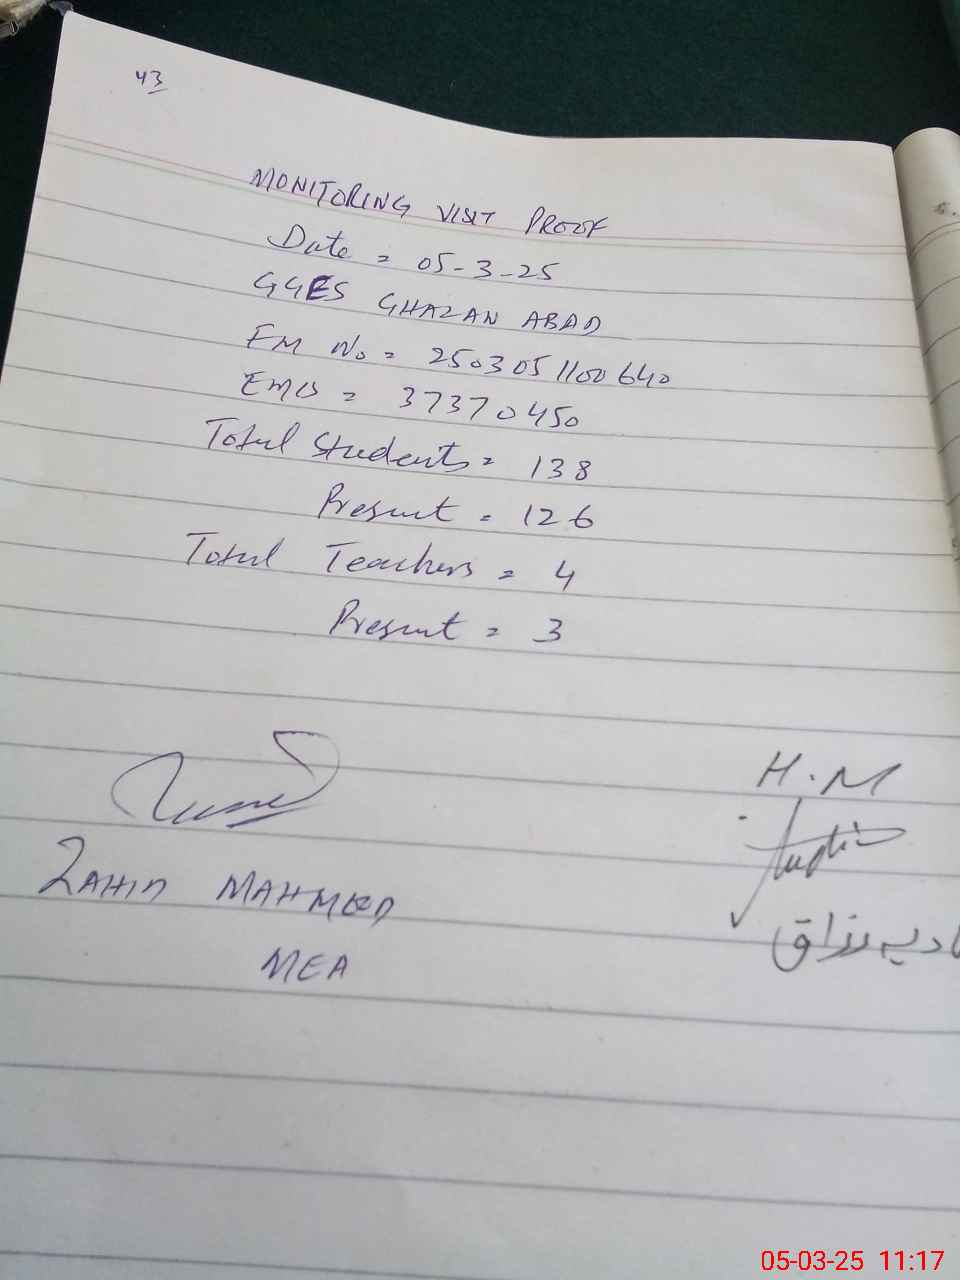 43
MONITORING VISIT PROOF
Date = 05-3-25
GGES GHAZAN ABAD
FM No = 2503051100640
EMIS = 37370450
Total Students = 138
Present = 126
Total Teachers = 4
Present = 3
H.M
ZAHID MAHMOOD
رزاق
MEA
05-03-25 11:17